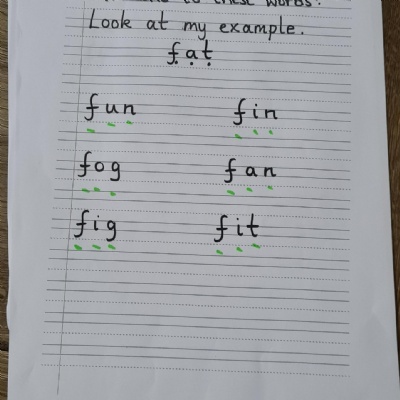 to these words.
Look at my example.
fat
fun fin
fog fan
fig fit